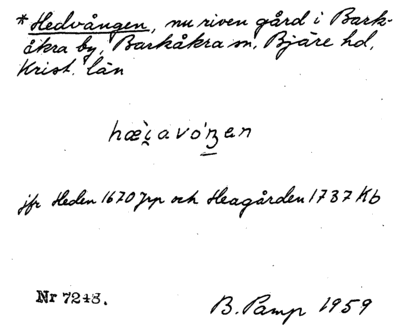 *Hedvången, nu riven gård i Bark-
åkra by, Barkåkra sn, Bjäre hd,
Krist. län
jfr Heden 1670 Jrp och Heagården 1737 Kb
Nr 7248.
B. Pamp 1959